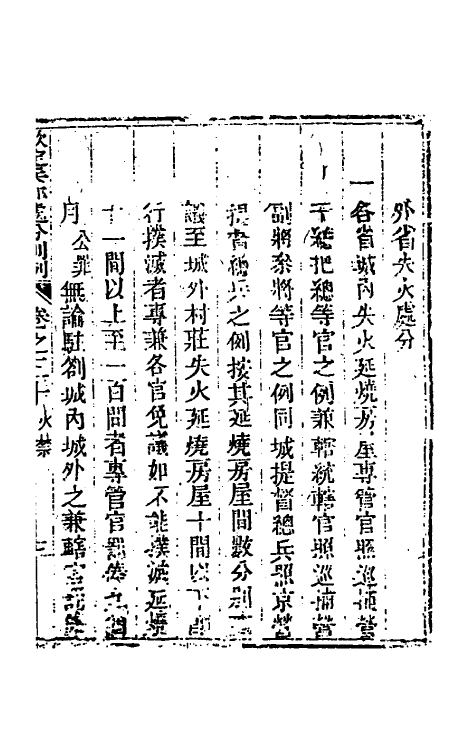 外省失火處分
一各省城內失火延燒房屋專管官照巡捕營
千總把總等官之例兼轄統轄官照巡捕營
副將參將等官之例同城提督總兵照京營
提督總兵之例按其延燒房屋間數分別
議至城外村莊失火延燒房屋十間以下
行撲滅者專兼各官免議如不能撲滅延燒
十一間以上至一百間者專管官罰俸九個
月公罪無論駐劄城內城外之兼轄官
處分則例 卷之三十 火禁